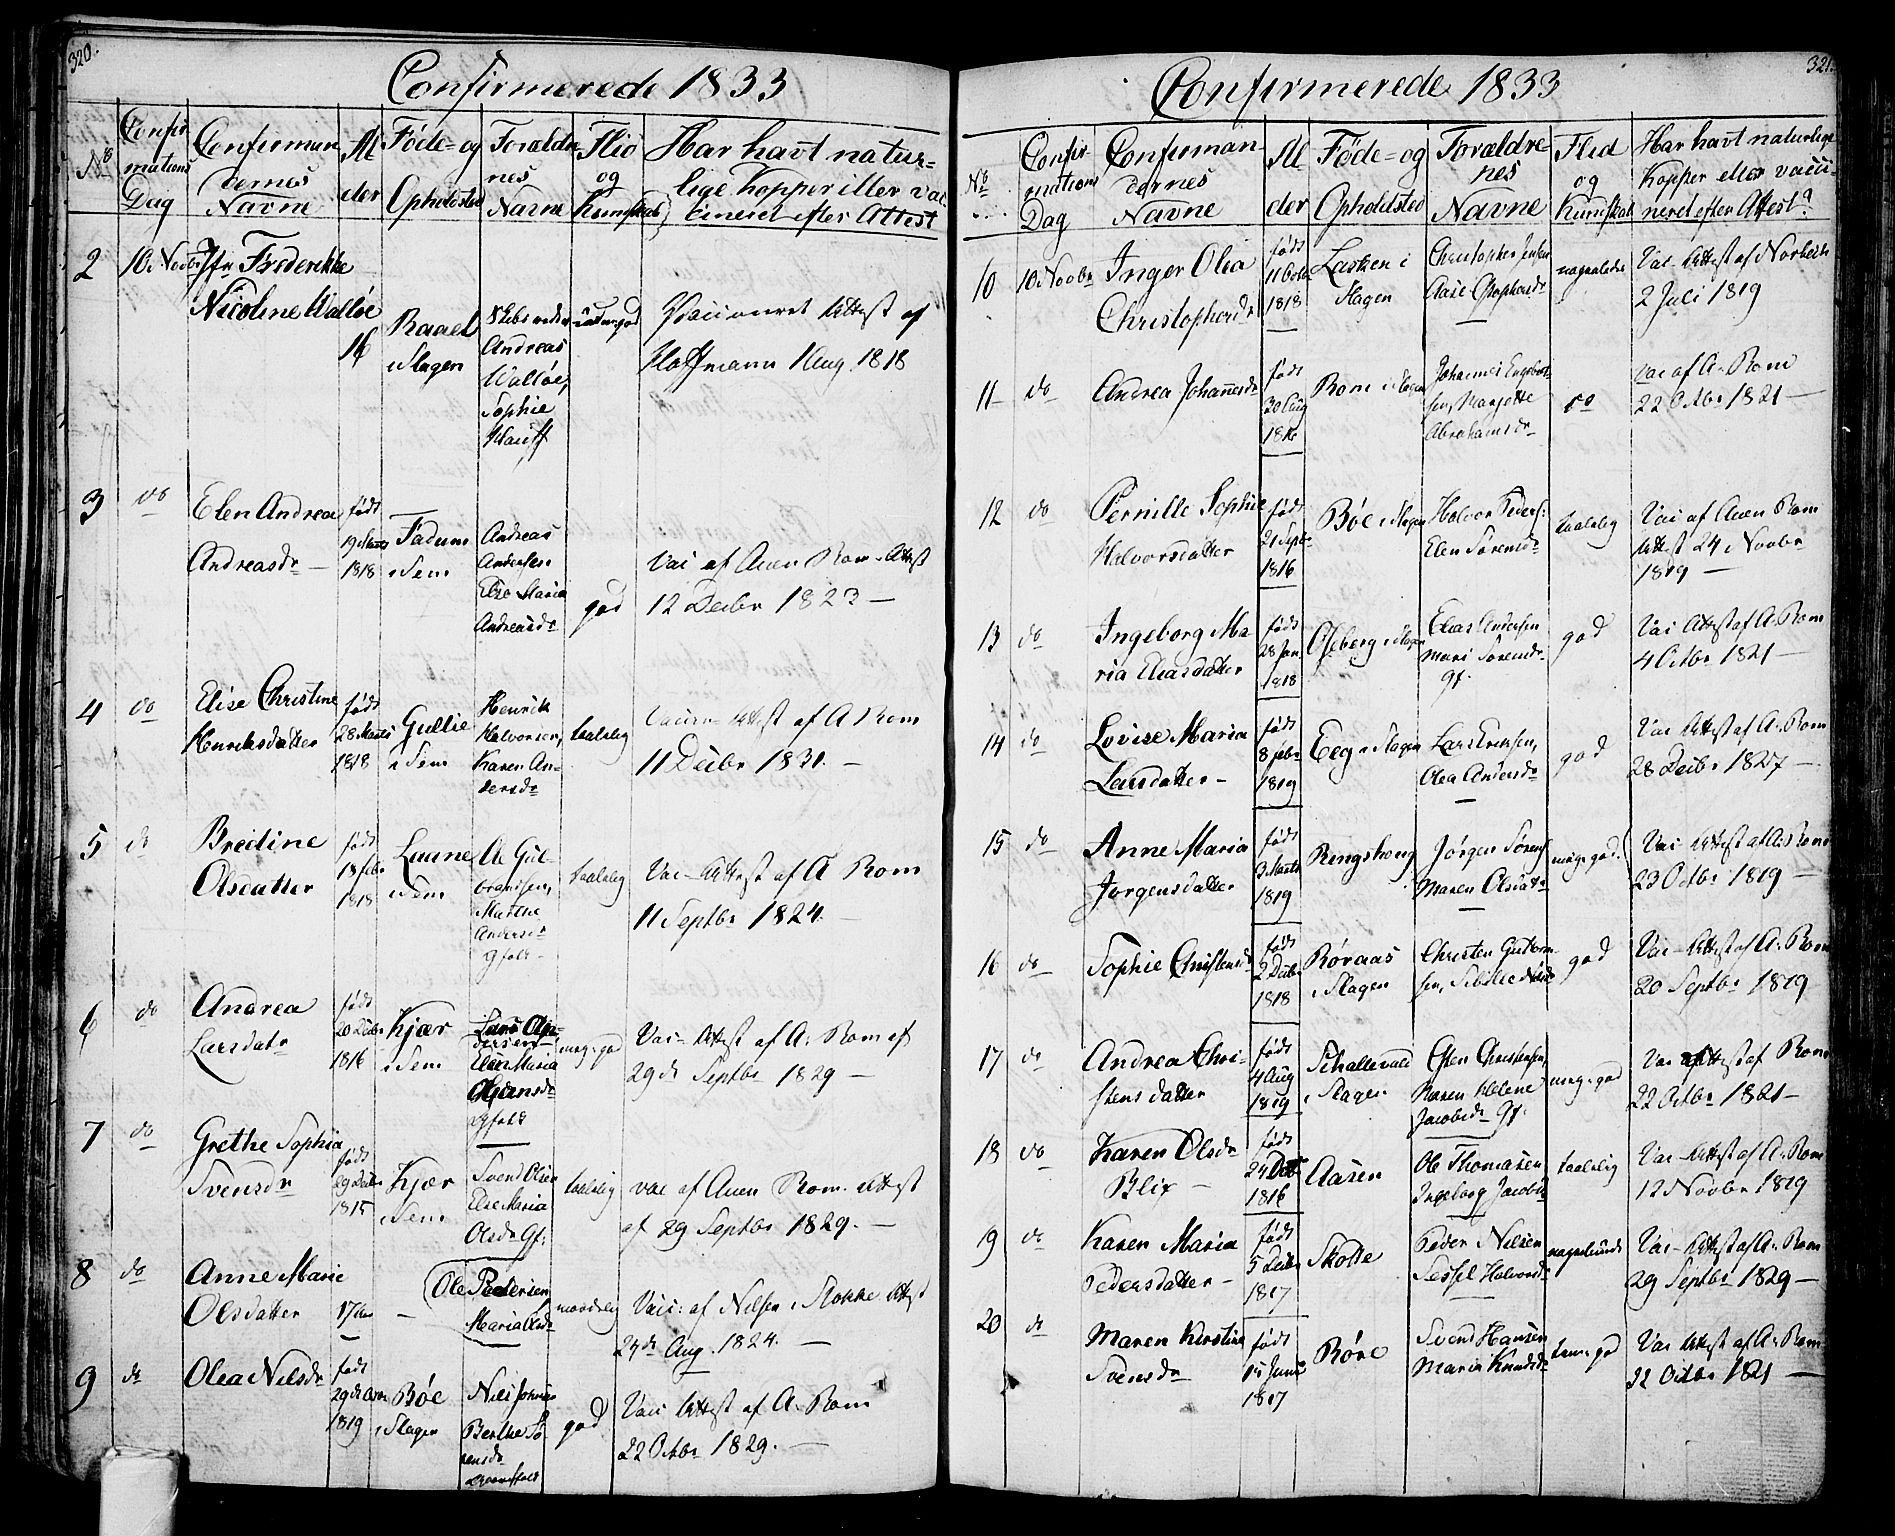 320.
Confirmerede 1833
No
Confir
mations
Dag
Confirman
dernes
Navne
Al
der
Føde- og
Opholdsted
Forældre
nes
Navne
Flid
og
Kundskab
Har havt natur-
lige Kopper eller vac
cineret efter Attest
2
10 Novbr
Jfr Frederikke
Nicoline Walløe
16
Raael
i Slagen
Andreas
Walløe,
Sophie
Hauff
Vaccineret Attest af
Hoffmann 1 Aug 1818
3
do
Elen Andrea
Andreasdr
født
19 Marts
1818
Fadum
i Sem
Andreas
Andersen
Else Maria
Andreasdr
god
Vac af Auen Rom Attest
12 Decbr 1823
4
do
Elise Christine
Henriksdatter
født
28 Marts
1818
Gullie
i Sem
Henrik
Halvorsen,
Karen An-
dersdr
taalelig
Vaccin Attest af A Rom
11 Decbr 1831.
5
do
Bredine
Olsdatter
født
18 febr
1818
Laune
i Sem
Ole Gul-
brandsen,
Marthe
Andersdr
Gfolk
taalelig
Vac- Attest af A Rom
11 Septbr 1824.
6
do
Andrea
Larsdatr
født
20 Decbr
1816
Kjær
i Sem
Lars An-
dersen
Elen Maria
Gfolk
meg god
Vac- Attest af A: Rom af
29de Septbr 1829
7
do
Grethe Sophia
Svensdr
født
29 Decbr
1815
Kjær
i Sem
Svend Olsen
Else Maria
Olsdr Gf:
taalelig
vac af Auen Rom. Attest
af 29 Septbr 1829.
8
do
Anne Marie
Olsdatter
17 Aar
Ole Pedersen
Maria Olsdr
maadelig
Vacc: af Nilsen i Stokke Attest
24de Aug. 1824.
9
do
Olea Nilsdr
født
1819
Bøe
i Slagen
Nils
Berthe Sø
rensdr
god
Vac Attest af A. Rom
22 Octbr 1829.
321.
Confirmerede 1833
No
Confir
mations
Dag
Confirman
dernes
Navne
Al
der
Føde- og
Opholdsted
Forældre
nes
Navne
Flid
og
Kundskab
Har havt naturlige
Kopper eller vacci-
neret efter Attest?
10
10 Novbr
Inger Olea
Christophersdr
født
11 Octbr
1818
i
Slagen
Christopher Jensen
Aase
Vac- Attest af
2 Juli 1819
11
do
Andrea Johannesdr
født
30 Aug
1816
Rom i Slagen
Johannes Engebret-
sen,
Abrahamsdr
do
vac af A. Rom
22 Octbr 1821
12
do
Pernille Sophie
Halvorsdatter
født
21 Septr
1816
Bøe i Slagen
Halvor Peders:
Elen Sørensdr
taalelig
Vac af Auen Rom
Attest 24 Novbr
1819
13
do
Ingeborg Ma
ria Eliasdatter
født
28 Jan
1818
Oseberg i Slagen
Elias Andersen
Mari Sørensdr
Gf.
god
Vac Attest af A. Rom
4 Octbr 1821
14
do
Lovise Maria
Larsdatter
født
8 febr
1819
Eeg i Slagen
Lars Eriksen,
Olea Andersdr
god
Vac Attest af A. Rom
28 Decbr 1827
15
do
Anne Maria
Jørgensdatter
født
3 Marts
1819
Ringshoug
Jørgen Sørens
Maren Olsdatr
meg god.
Vac- Attest af A: Rom
23 Octbr 1819
16
do
Sophie Christensdr
født
2 Decbr
1818
Røraas
i Slagen
Christen Guttorm
sen, Sibille
god
Vac- Attest af A: Rom
20 Septbr 1819
17
do
Andrea Chri-
stensdatter
født
4 Aug
1819
Schallevald
i Slagen
Christensen,
Karen Helene
Jacobsdr Gf:
meg god
Vac Attest af Rom
22 Octbr 1821
18
do
Karen Olsdr
Blix
født
24
1816
Aasen
Ole Thomasen
Ingeborg Jacobsd
taalelig
Vac- Attest af A: Rom
12 Novbr 1819
19
do
Karen Maria
Pedersdatter
født
5 Decbr
1817
Skotte
Peder Nilsen
Sessel Halvorsdr
Vac- Attest af A. Rom
29 Septbr 1829
20
do
Maren Kirstine
Svensdr
født
15 Juni
1817
Røre
Svend Hansen
Maria Knudsdr
Vac Attest af A: Rom
22 Octbr 1821